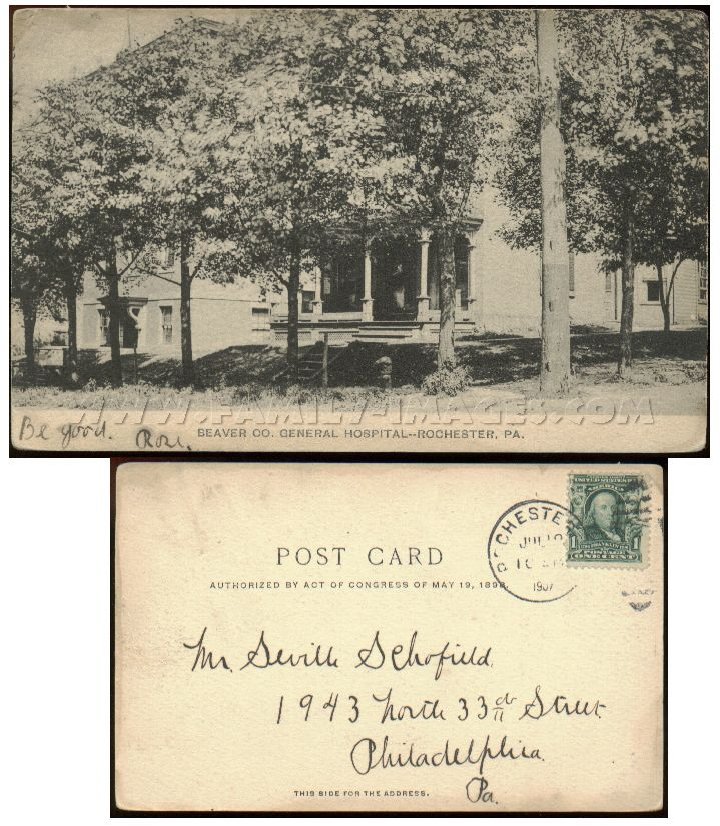 WWW.FAMILY-IMAGES.COM
Be good. Rose.
BEAVER CO. GENERAL HOSPITAL--ROCHESTER, PA.
POST CARD
AUTHORIZED BY ACT OF CONGRESS OF MAY 19, 1898.
ROCHESTER
JUL
1907
UNITED STATES
OF AMERICA
1
POSTAGE
ONE CENT
Mr. Seville Schofield,
1943 North 33rd Street
Philadelphia
Pa.
THIS SIDE FOR THE ADDRESS.